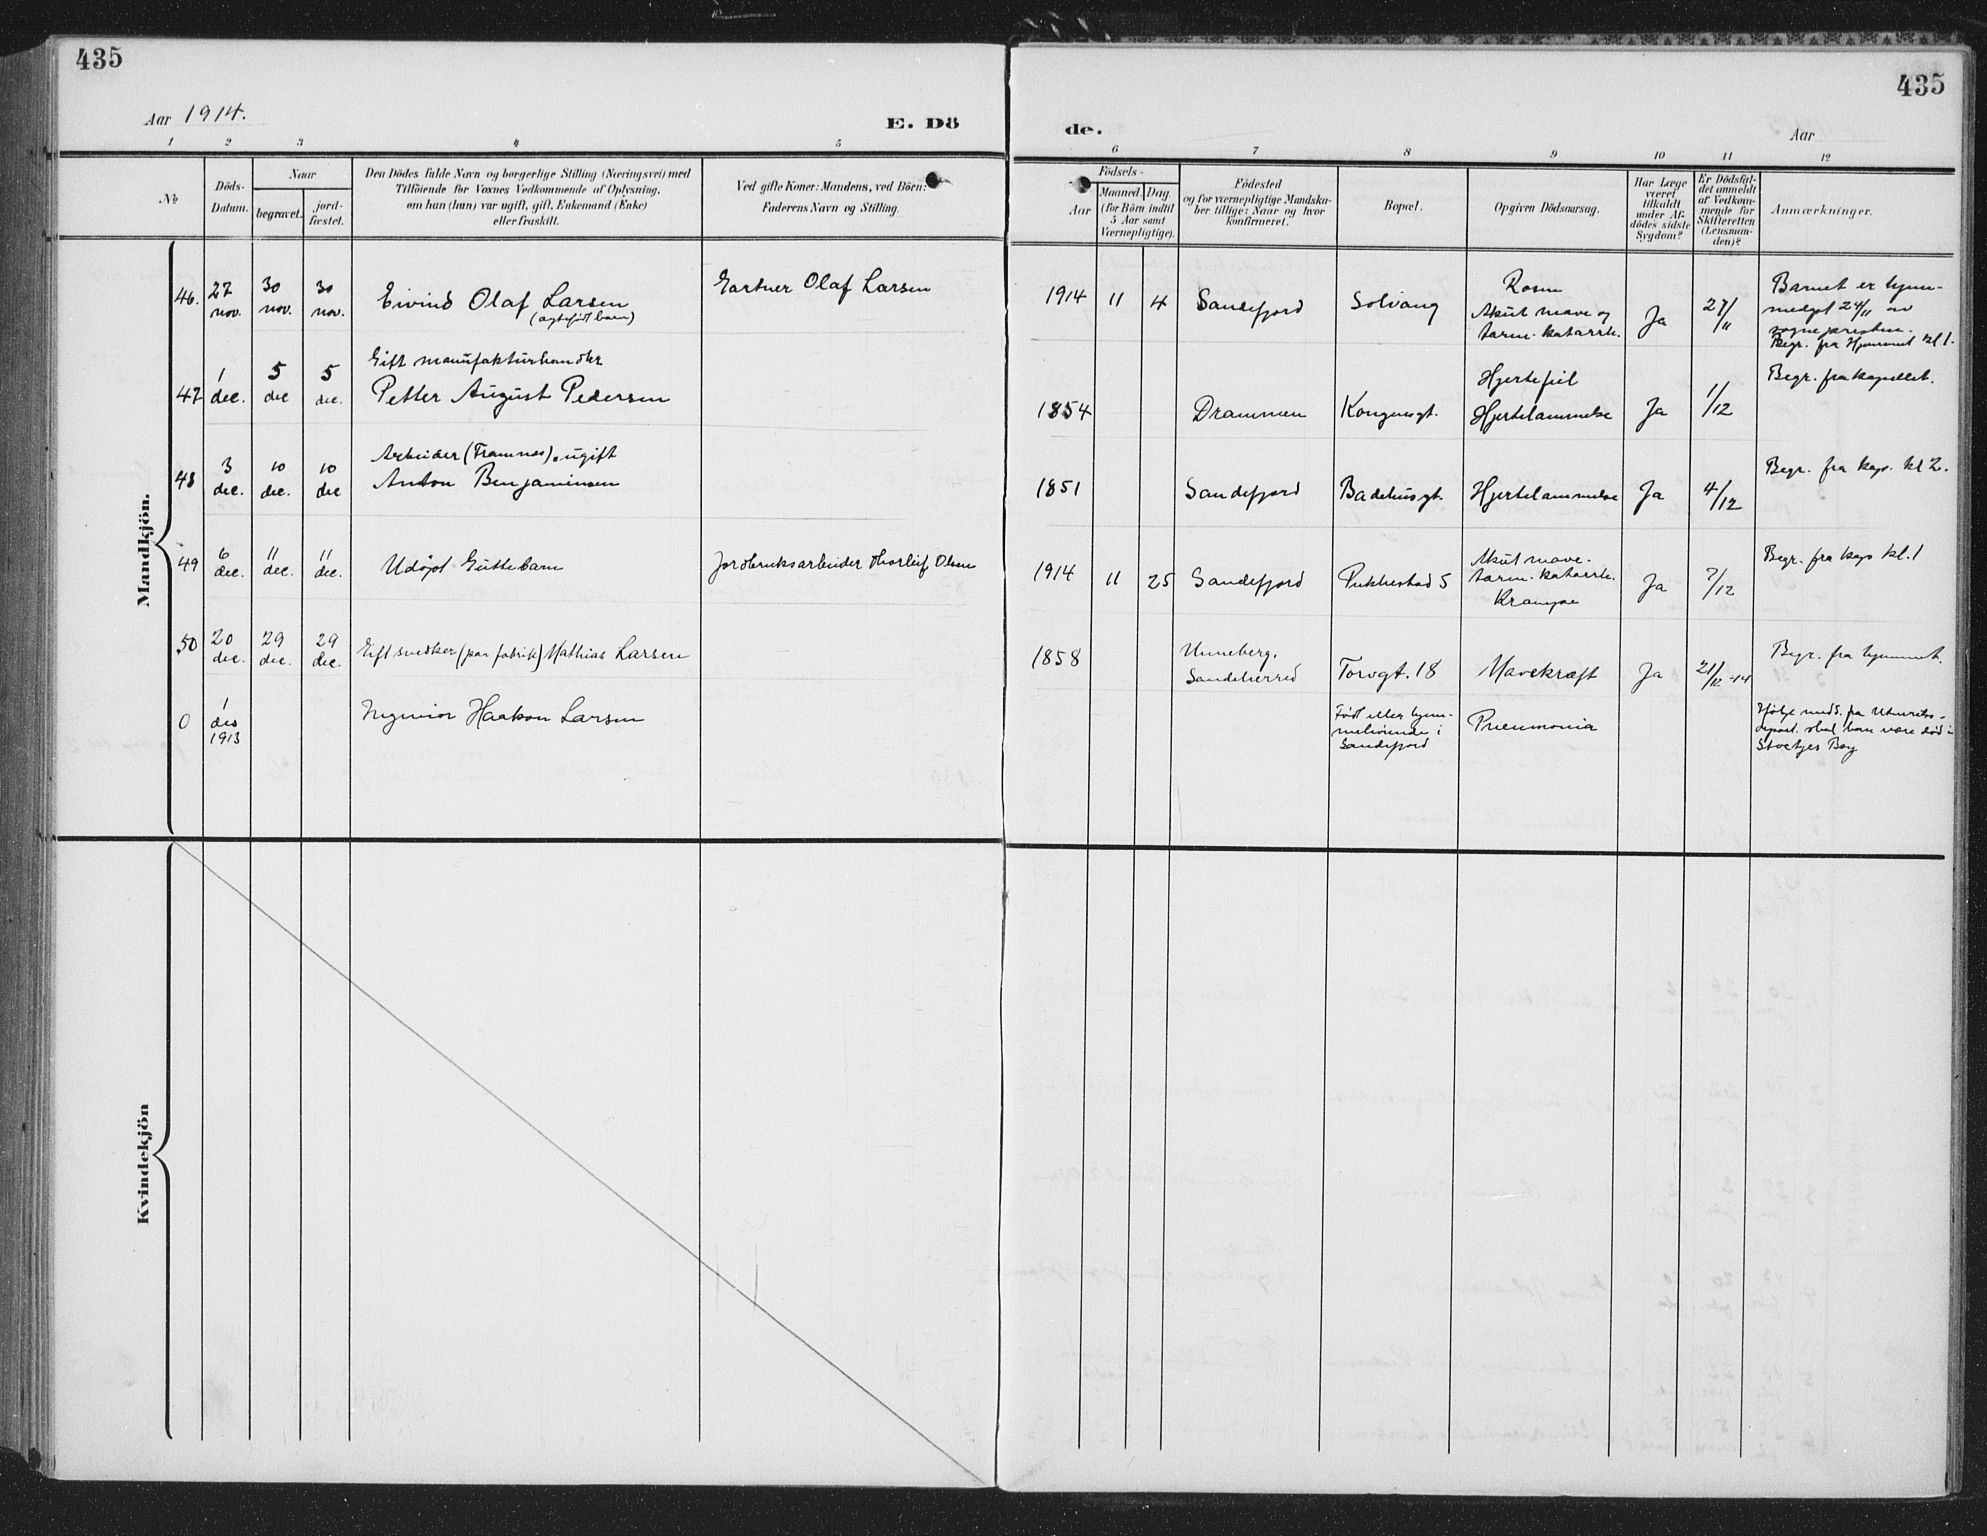 435
435
Aar 1914.
E. Dö
de.
Aar
1 2 3 4 5 6 7 8 9 10 11 12
No
Döds-
Datum.
Naar
begravet.
jord-
fæstet.
Den Dödes fulde Navn og borgerlige Stilling (Næringsvei) med
Tilföiende for Voxnes Vedkommende af Oplysning,
om han (hun) var ugift, gift, Enkemand (Enke)
eller fraskilt.
Ved gifte Koner: Mandens, ved Börn:
Faderens Navn og Stilling.
Födsels-
Aar
Maaned. Dag.
(for Börn indtil
5 Aar samt
Værnepligtige).
Födested
og for værnepligtige Mandska-
ber tillige: Naar og hvor
konfirmeret.
Bopæl.
Opgiven Dödsaarsag.
Har Læge
været
tilkaldt
under Af-
dödes sidste
Sygdom?
Er Dödsfal-
det anmeldt
af Vedkom-
mende for
Skifteretten
(Lensman-
den)?
Anmærkninger.
Mandkjön.
46.
27
nov.
30
nov.
30
nov.
Eivind Olaf Larsen
(ægtefødt barn)
Gartner Olaf Larsen
1914 11 4
Sandefjord
Solvang
Akut mave og
tarm-katarrh.
Ja
27/11
Barnet er hjem-
medøpt 24/11 av
sognepresten.
Begr. fra Hjemmet kl 1.
47
1
dec.
5
dec
5
dec.
Gift manufakturhandler
Petter August Pedersen
1854
Drammen
Kongensgt.
Hjertefeil
Hjertelammelse
Ja
1/12
Begr. fra kapellet.
48
3
dec.
10
dec.
10
dec
Arbeider (Framnæs). ugift
Anton Benjaminsen
1851
Sandefjord
Badehusgt.
Hjertelammelse
Ja
4/12
Begr. fra kap. kl 2.
49
6
dec.
11
dec.
11
dec.
Udøpt Guttebarn
Jordbruksarbeider Thorleif Olsen
1914 11 25
Sandefjord
Pukkestad 5
Akut mave-
tarm-katarrh.
Krampe
Ja
7/12
Begr. fra kap kl. 1
50
20
dec.
29
dec.
29
dec.
Gift snedker (paa fabrik) Mathias Larsen
1858
Unneberg,
Sandeherred
Torvgt. 18
Mavekræft
Ja
21/12-14
Begr. fra hjemmet.
0
1
des
1913
Ingeniør Haakon Larsen
Født eller hjem-
mehørende i
Sandefjord
Pneumonia
Ifølge medd. fra Utenriks-
depart. skal han være død i
Kvindekjön